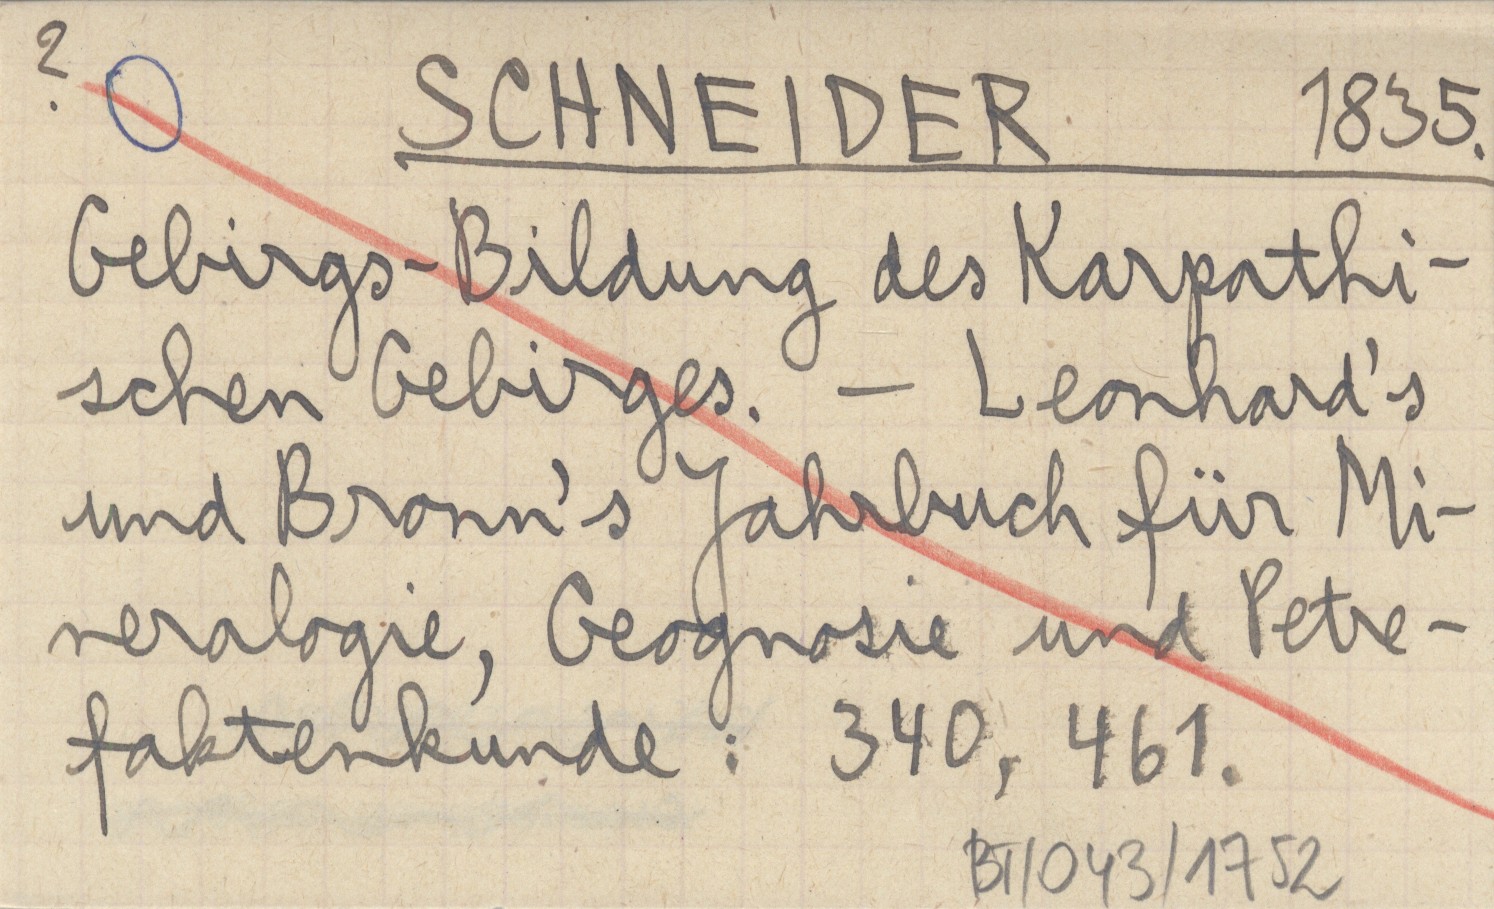 ?
SCHNEIDER 1835.
Gebirgs-Bildung des Karpathi-
schen Gebirges. — Leonhard's
und Bronn's Jahrbuch für Mi-
neralogie, Geognosie und Petre-
faktenkunde: 340, 461.
BT/043/1752